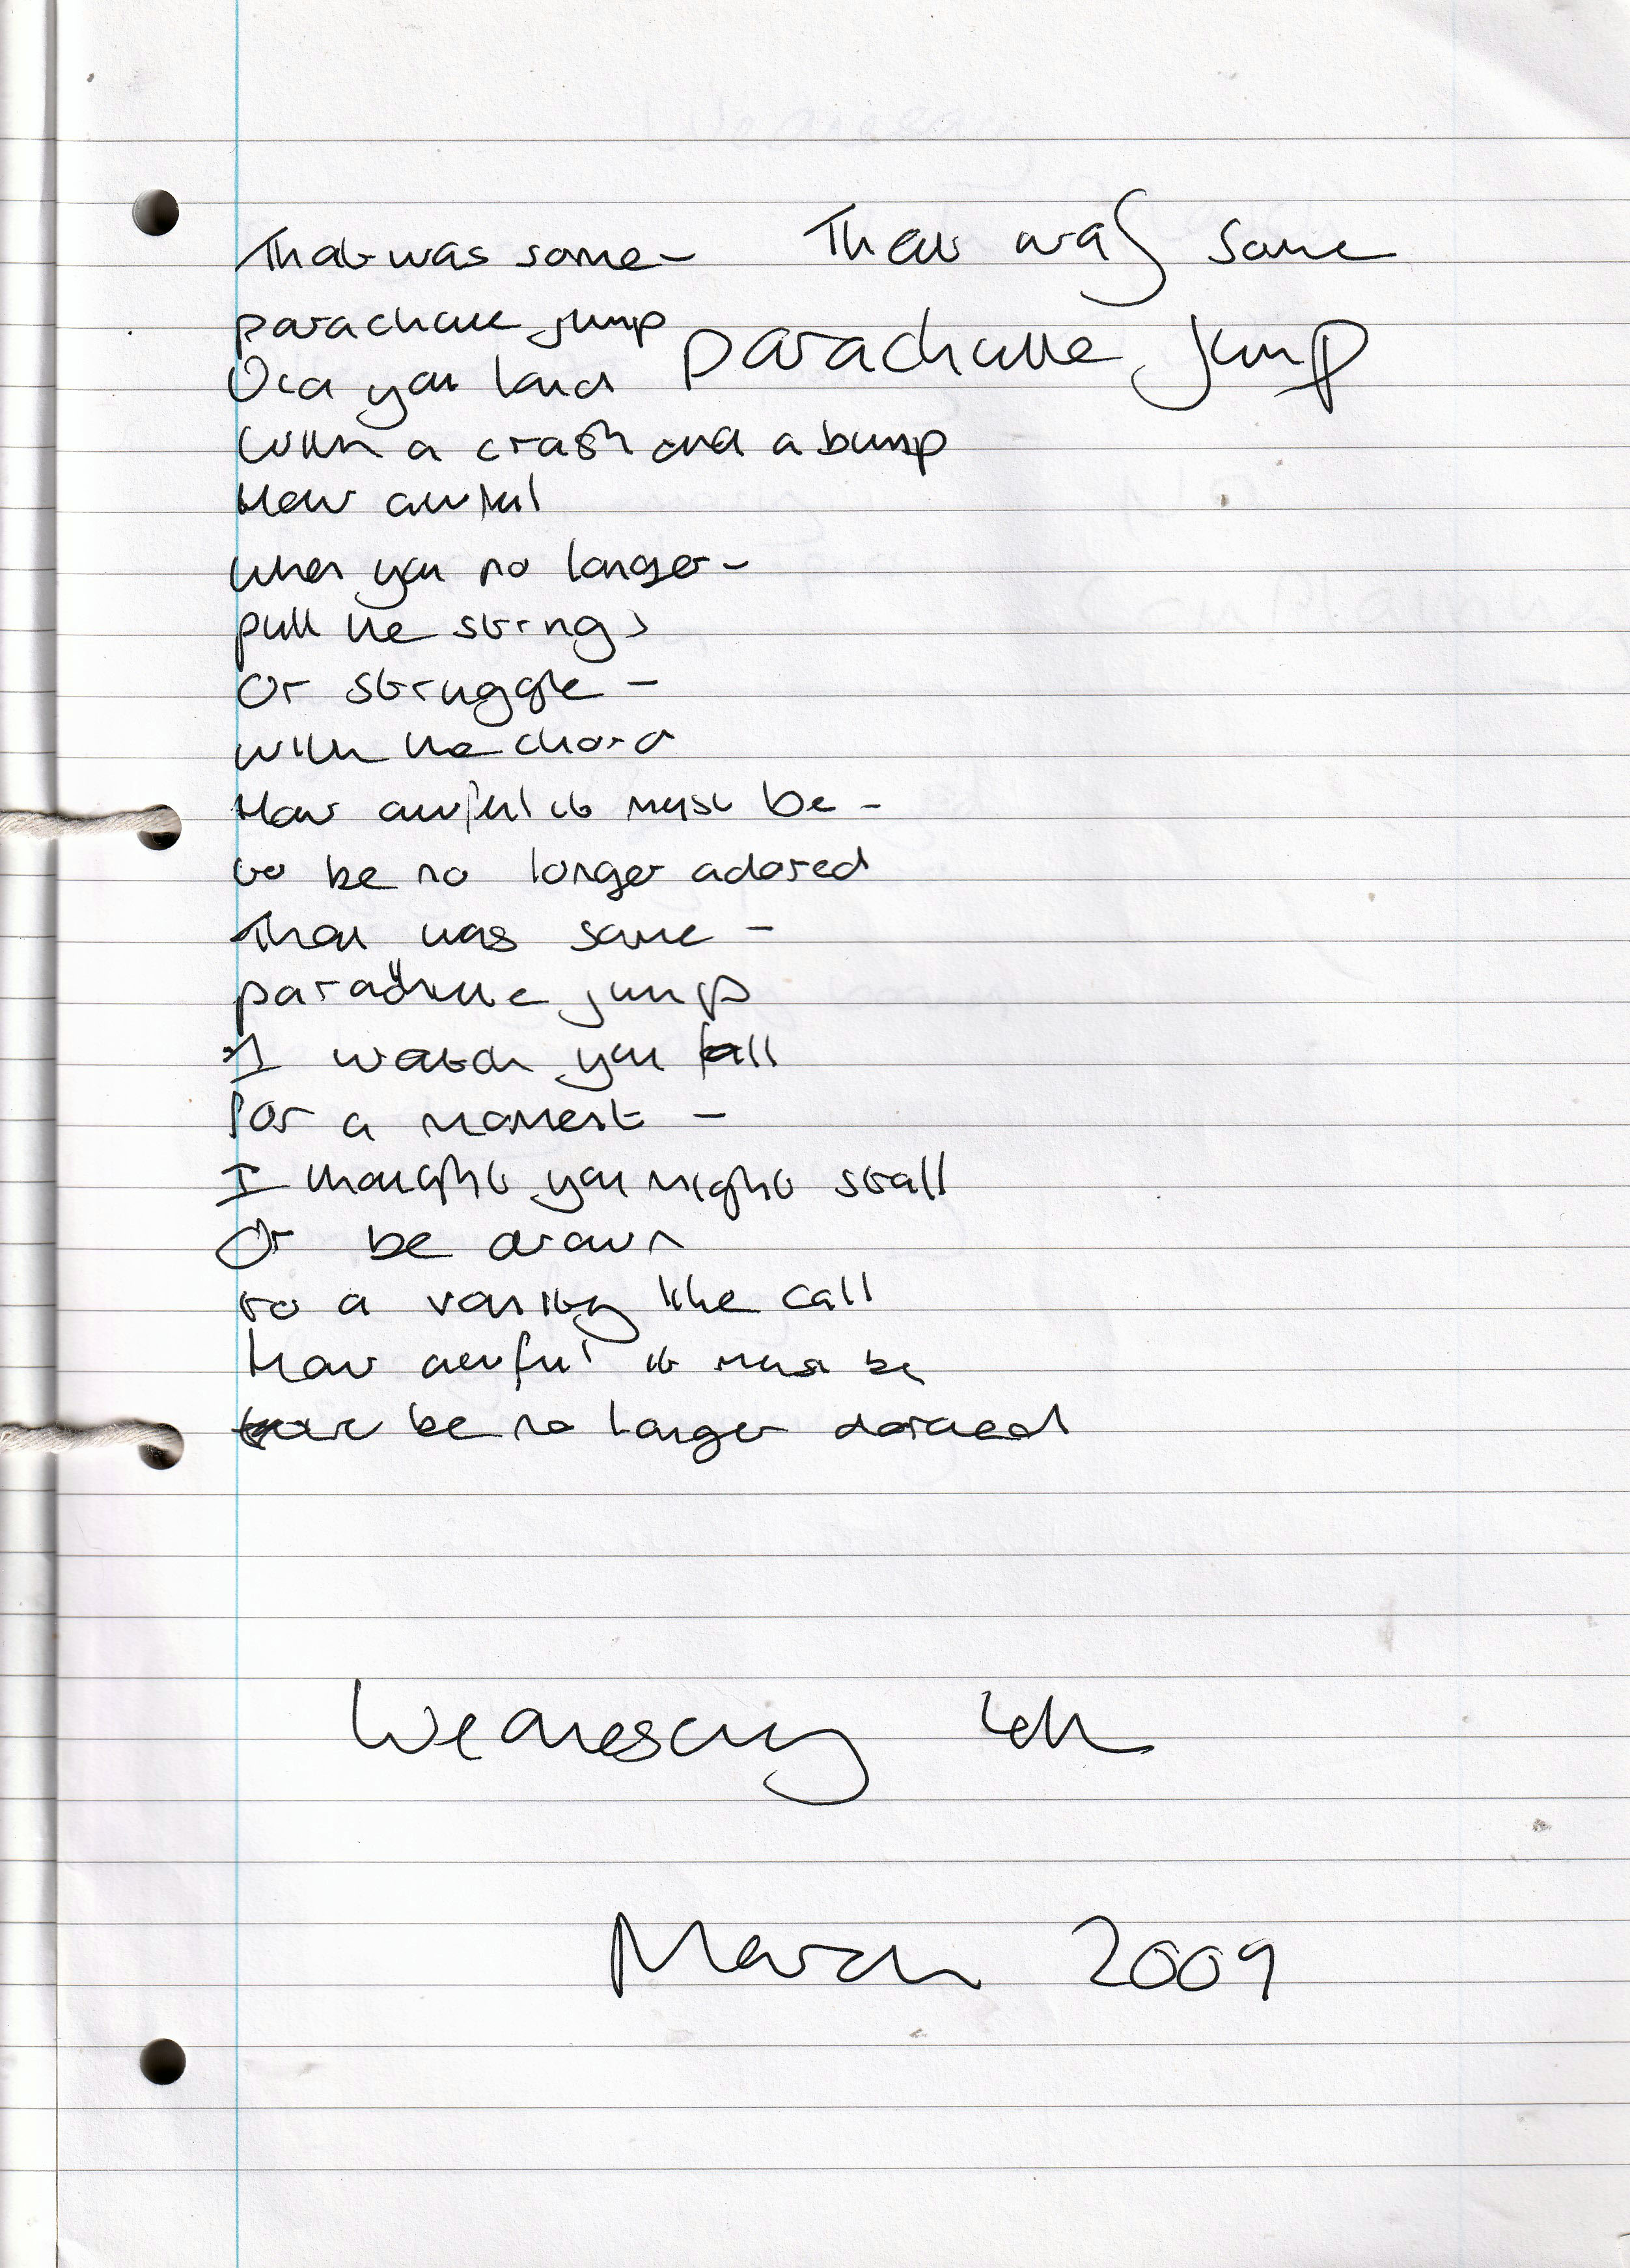 That was some
parachute jump
That was some -
parachute jump
Did you land
with a crash and a bump
How awful
when you no longer -
pull the strings
Or struggle -
with the chord
How awful it must be -
to be no longer adored
That was some -
parachute jump
I watch you fall
for a moment -
I thought you might stall
Or be drawn
to a vanity like call
How awful it must be
be no longer adored
Wednesday 4th
March 2009